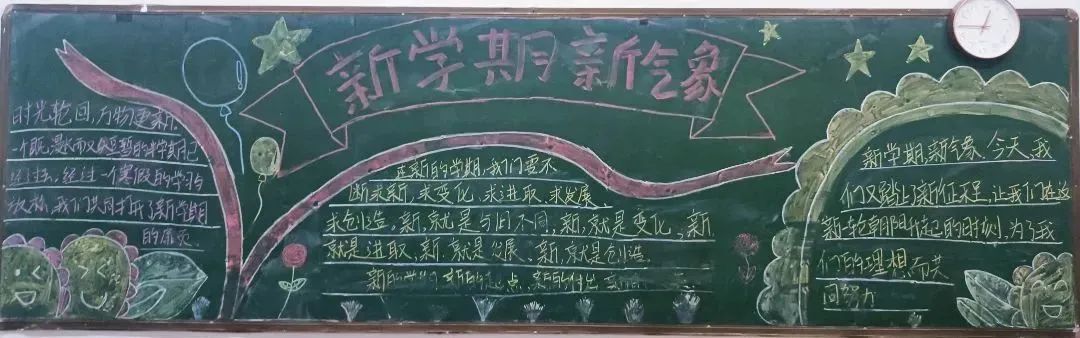 新学期新气象
时光轮回,万物更新。
一个既漫长而又短暂的科学自己
过去。经过一个寒假的学习与
放松,我们共同打开了新学期
的扉页。
在新的学期,我们要不
断求新,求变化,求进取,求发展、
求创造,新,就是与旧不同,新,就是变化、新
就是进取,新,就是发展、新,就是创造。
新的学期 新的起点、新的付出
新学期,新气象、今天,我
们又踏上了新征程,让我们在这
新一轮朝阳升起的时刻,为了我
们的理想而共
同努力